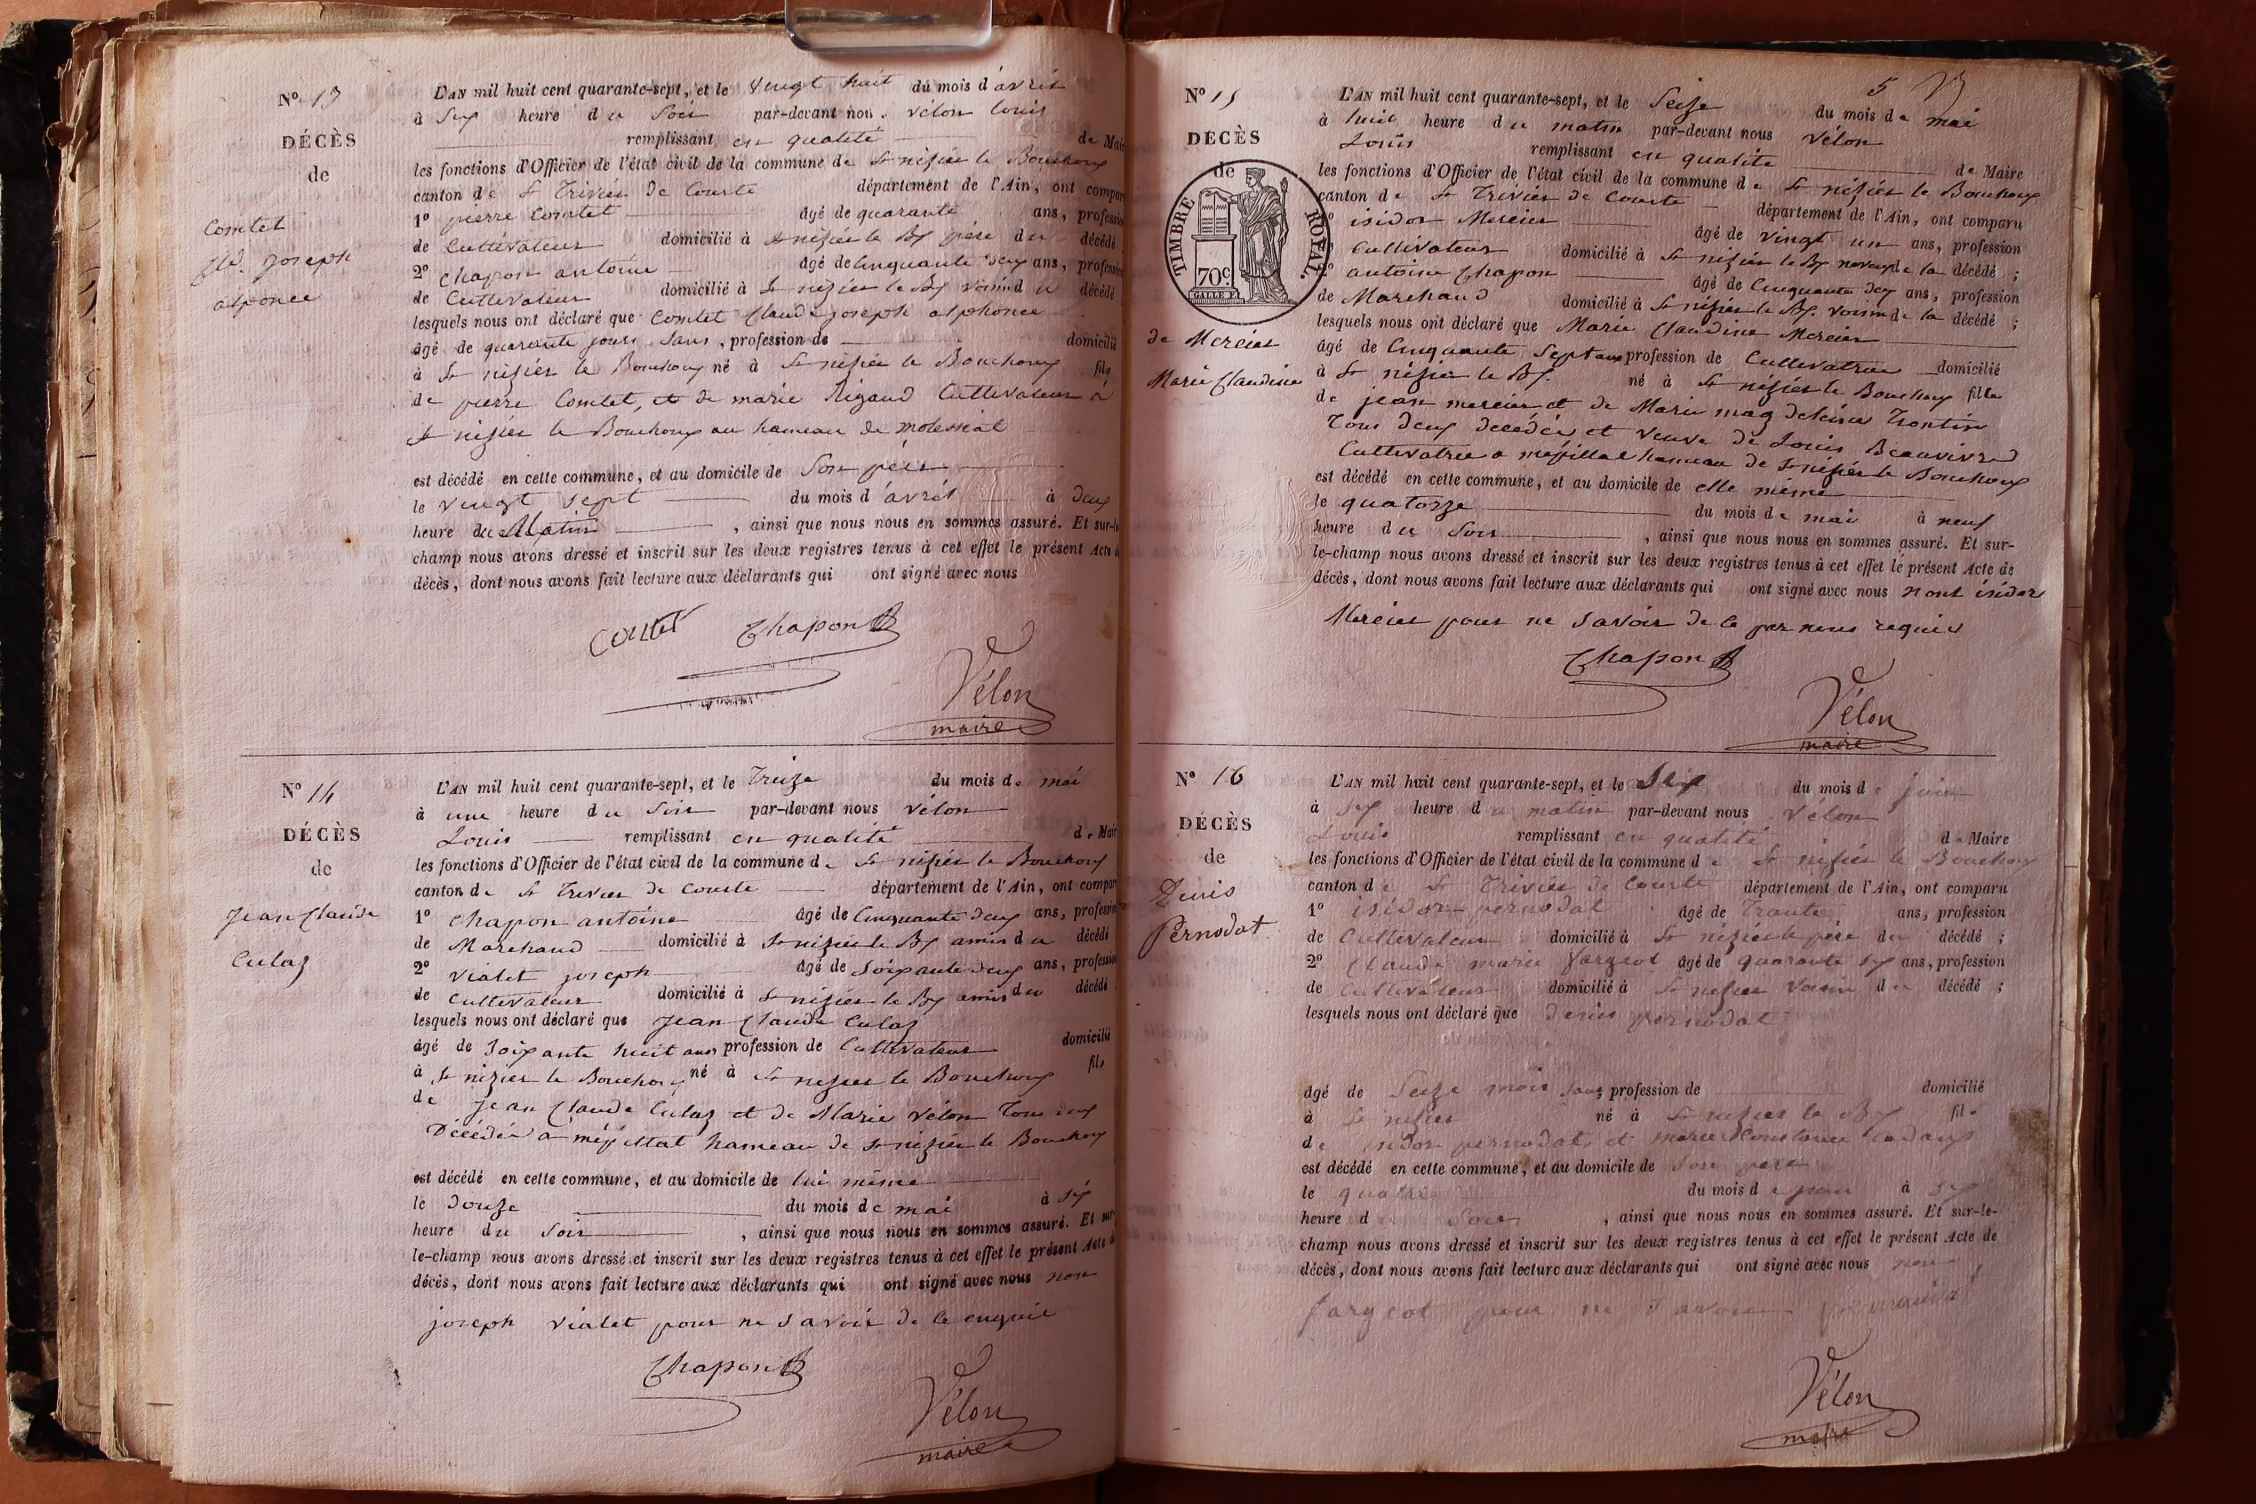 N° 13
DÉCÈS
de
Comtet
Cld. joseph
alponce
L'AN mil huit cent quarante-sept, et le vingt huit du mois d'avril
à six heure du Soir par-devant nou. vélon louis
remplissant en qualité de Mair
les fonctions d'Officier de l'état civil de la commune de St nizier le Bouchoux
canton de St Trivier de Courte département de l'Ain, ont compar
1° pierre Comtet âgé de quarante ans, professio
de Cultivateur domicilié à St nizier le Bx père du décédé
2° Chapon antoine âgé de Cinquante deux ans, professio
de Cultivateur domicilié à St nizier le Bx voisin du décédé
lesquels nous ont déclaré que Comtet Claude joseph alphonce
âgé de quarante jours Sans, profession de domicilié
à St nizier le Bouchoux né à St nizier le Bouchoux fils
de pierre Comtet, et de marie Rigaud Cultivateur à
St nizier le Bouchoux au hameau de molessiat
est décédé en cette commune, et au domicile de Son père
le vingt sept du mois d'avril à deux
heure du Matin, ainsi que nous nous en sommes assuré. Et sur-le
champ nous avons dressé et inscrit sur les deux registres tenus à cet effet le présent Acte d
décès, dont nous avons fait lecture aux déclarants qui ont signé avec nous
Comtet Chapon
Vélon
maire
N° 14
DÉCÈS
de
Jean Claude
Culaz
L'AN mil huit cent quarante-sept, et le Treize du mois de mai
à une heure du Soir par-devant nous vélon
Louis remplissant en qualité de Mair
les fonctions d'Officier de l'état civil de la commune de St nizier le Bouchoux
canton de St Trivier de Courte département de l'Ain, ont compar
1° Chapon antoine âgé de Cinquante deux ans, professio
de Marchand domicilié à St nizier le Bx amis du décédé
2° vialet joseph âgé de Soixante deux ans, professio
de Cultivateur domicilié à St nizier le Bx amis du décédé
lesquels nous ont déclaré que Jean Claude Culaz
âgé de Soixante huit ans profession de Cultivateur domicilié
à St nizier le Bouchoux né à St nizier le Bouchoux fils
de Jean Claude Culaz et de Marie vélon Tous deux
Décédés à méxillat hameau de St nizier le Bouchoux
est décédé en cette commune, et au domicile de lui même
le Douze du mois de mai à six
heure du Soir, ainsi que nous nous en sommes assuré. Et sur
le-champ nous avons dressé et inscrit sur les deux registres tenus à cet effet le présent Acte d
décès, dont nous avons fait lecture aux déclarants qui ont signé avec nous non
joseph vialet pour ne savoir de ce enquis
Chapon
Vélon
maire
5
N° 15
DÉCÈS
de
TIMBRE ROYAL.
70c.
de Mercier
Marie Claudine
L'AN mil huit cent quarante-sept, et le Seize du mois de mai
à huit heure du matin par-devant nous Vélon
Louis remplissant en qualité de Maire
les fonctions d'Officier de l'état civil de la commune de St nizier le Bouchoux
canton de St Trivier de Courte département de l'Ain, ont comparu
isidor Mercier âgé de vingt un ans, profession
Cultivateur domicilié à St nizier le Bx neveux de la décédé ;
antoine Chapon âgé de Cinquante deux ans, profession
de Marchand domicilié à St nizier le Bx. voisin de la décédé ;
lesquels nous ont déclaré que Marie Claudine Mercier
âgé de Cinquante Sept ans profession de Cultivatrice domicilié
à St nizier le Bx. né à St nizier le Bouchoux fille
de jean mercier et de Marie magdeleine Trontin
Tous deux decedés et veuve de Louis Beauvivre
Cultivatrice a méxillat hameau de St nizier le Bouchoux
est décédé en cette commune, et au domicile de elle même
le quatorze du mois de mai à neuf
heure du Soir, ainsi que nous nous en sommes assuré. Et sur-
le-champ nous avons dressé et inscrit sur les deux registres tenus à cet effet le présent Acte de
décès, dont nous avons fait lecture aux déclarants qui ont signé avec nous nont isidor
Mercier pour ne savoir de ce par nous requis
Chapon
Vélon
maire
N° 16
DÉCÈS
de
Denis
Pernodat
L'AN mil huit cent quarante-sept, et le Six du mois de juin
à six heure du matin par-devant nous Vélon
Louis remplissant en qualité de Maire
les fonctions d'Officier de l'état civil de la commune de St nizier le Bouchoux
canton de St Trivier de Courte département de l'Ain, ont comparu
1° isidor pernodat âgé de Trante ans, profession
de Cultivateur domicilié à St nizier le père du décédé ;
2° Claude marie fargeot âgé de quarante six ans, profession
de Cultivateur domicilié à St nizier voisin du décédé ;
lesquels nous ont déclaré que Denis pernodat
âgé de Seize mois sans profession de domicilié
à St nizier né à St nizier le Bx fils
de isidor pernodat et marie Constance
est décédé en cette commune, et au domicile de Son pere
le quatre du mois de juin à six
heure du Soir, ainsi que nous nous en sommes assuré. Et sur-le-
champ nous avons dressé et inscrit sur les deux registres tenus à cet effet le présent Acte de
décès, dont nous avons fait lecture aux déclarants qui ont signé avec nous non
fargeot pour ne savoir
Vélon
maire